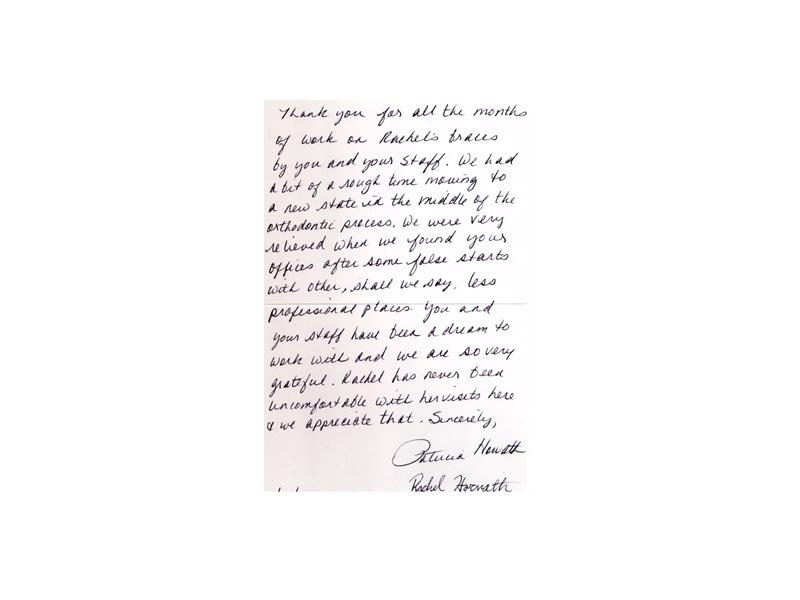 Thank you for all the months
of work on Rachel's braces
by you and your staff. We had
a bit of a rough time moving to
a new state in the middle of the
orthodontic process. We were very
relieved when we found your
offices after some false starts
with other, shall we say, less
professional places. You and
your staff have been a dream to
work with and we are so very
grateful. Rachel has never been
uncomfortable with her visits here
& we appreciate that. Sincerely,
Patricia Horvath
Rachel Horvath